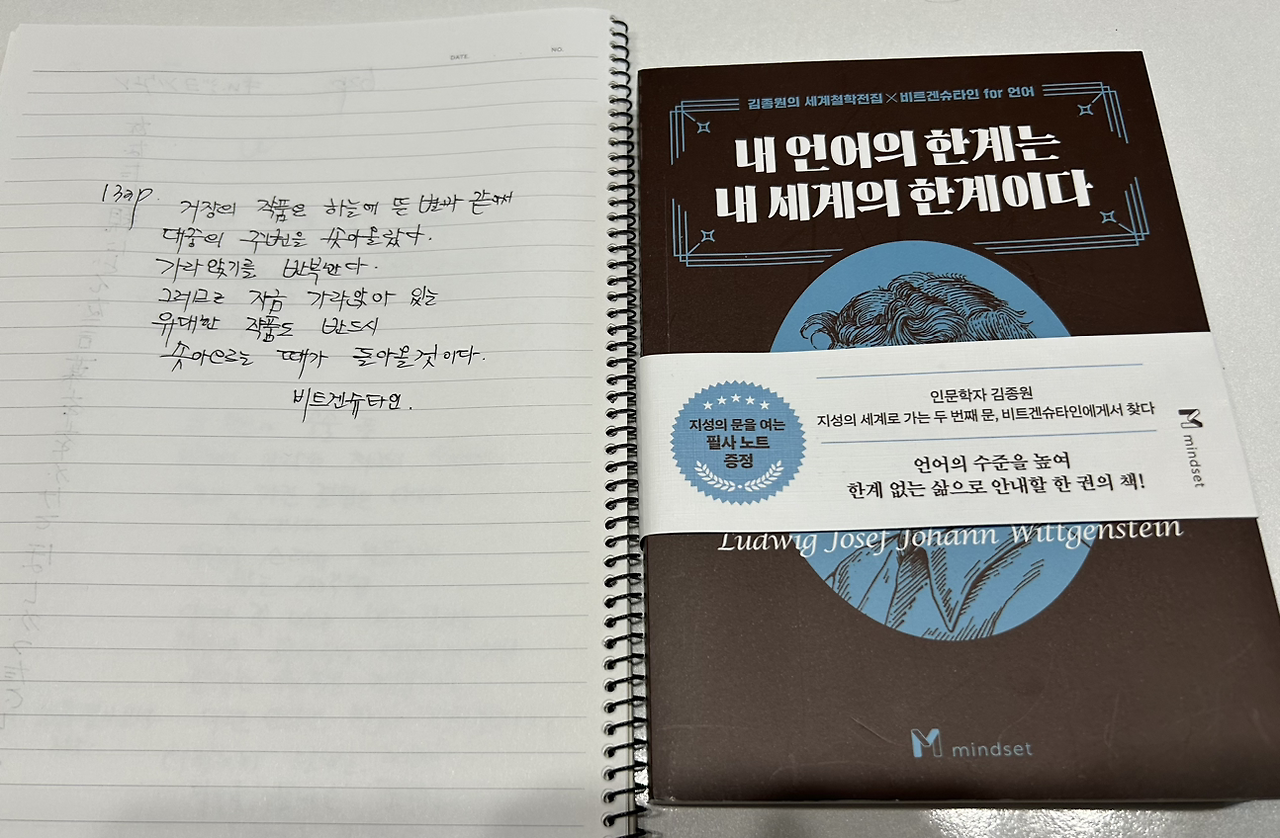 DATE. NO.
139p. 거장의 작품은 하늘에 뜬 별과 같아서
대중의 주변을 솟아올랐다.
가라앉기를 반복한다.
그러므로 지금 가라앉아 있는
위대한 작품도 반드시
솟아오르는 때가 돌아올것이다.
비트겐슈타인.
김종원의 세계철학전집×비트겐슈타인 for 언어
내 언어의 한계는
내 세계의 한계이다
지성의 문을 여는
필사 노트
증정
인문학자 김종원
지성의 세계로 가는 두 번째 문, 비트겐슈타인에게서 찾다
언어의 수준을 높여
한계 없는 삶으로 안내할 한 권의 책!
mindset
Ludwig Josef Johann Wittgenstein
mindset